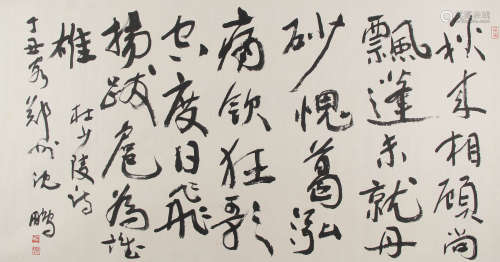 秋来相顾尚
飘蓬未就丹
砂愧葛洪
痛饮狂歌
空度日飞
扬跋扈为谁
雄
杜少陵诗
丁丑客郑州沈鹏